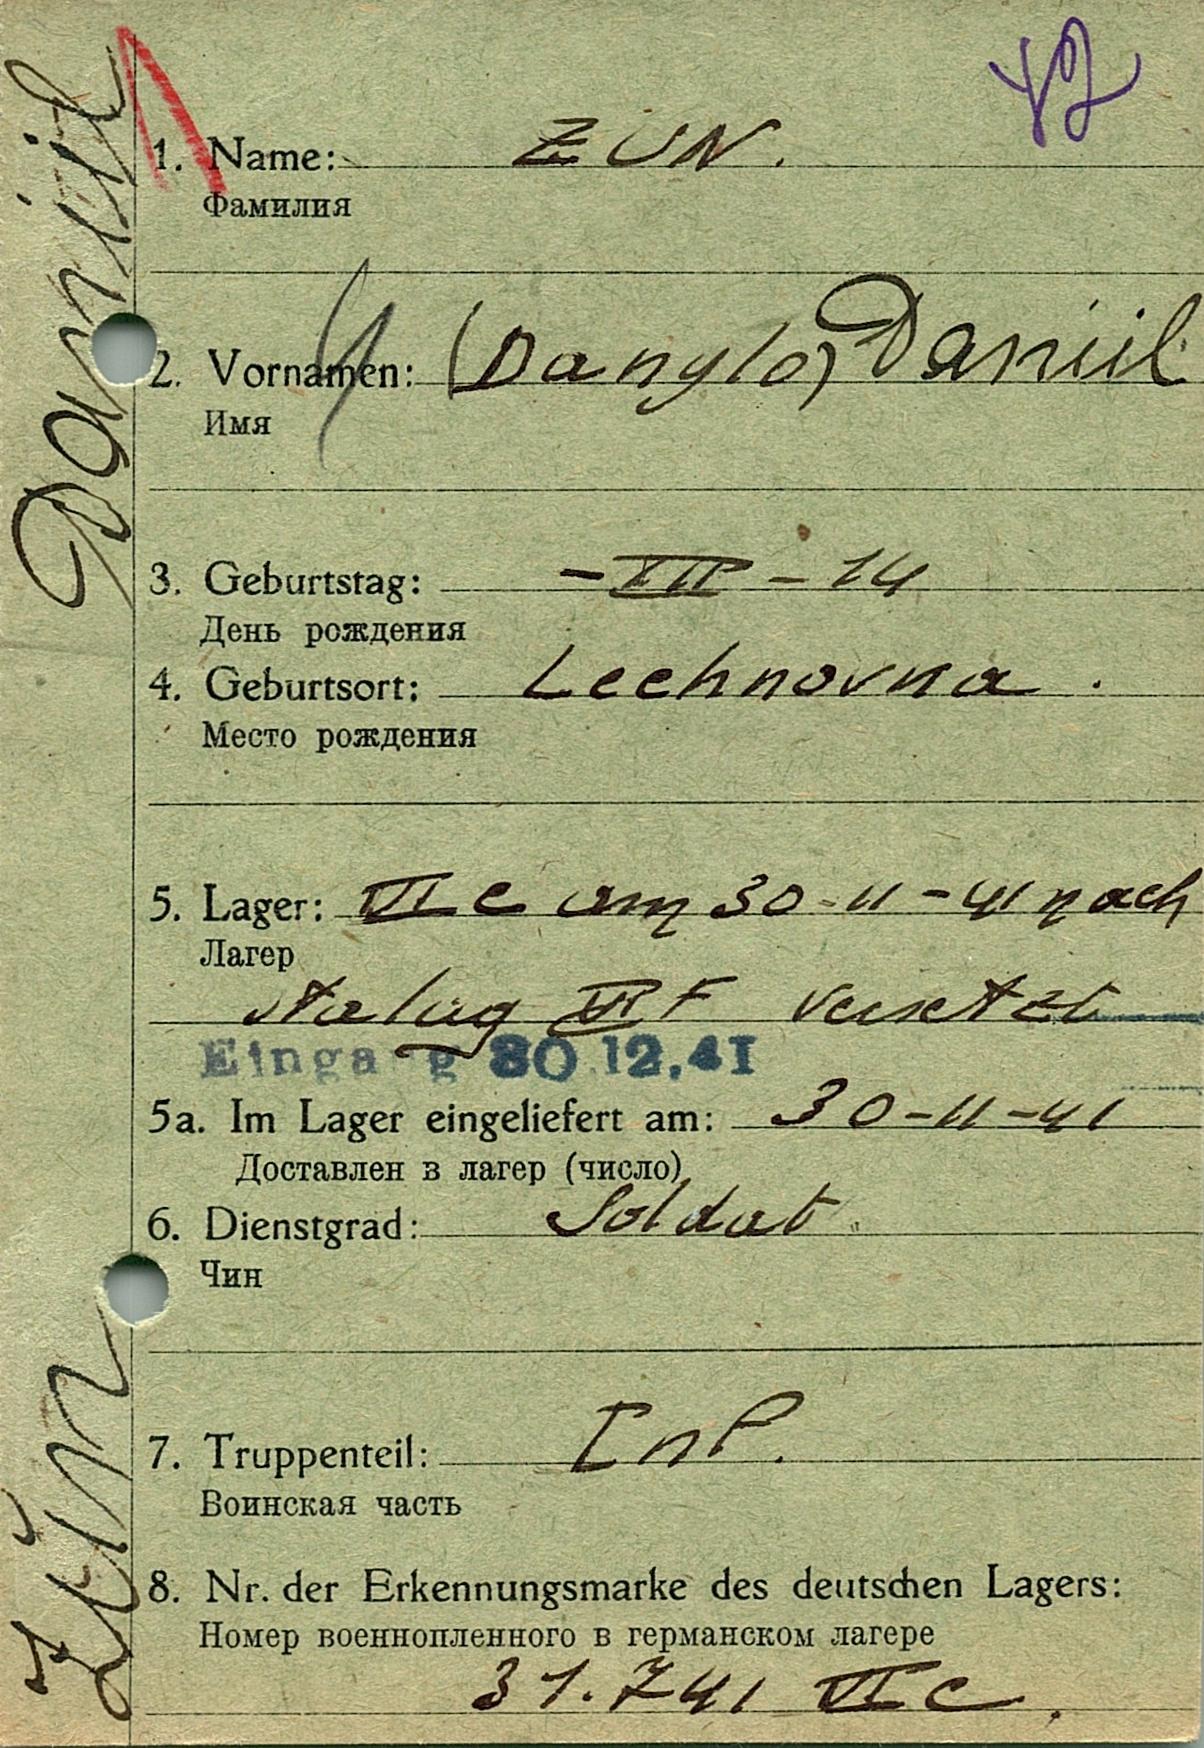 42
1. Name: ZUN.
Фамилия
2. Vornamen: (Danylo) Daniil
Имя
3. Geburtstag: – XII – 14
День рождения
4. Geburtsort: Lechnovna.
Место рождения
5. Lager: VI C am 30-11-41 nach
Лагер
Stalag VI F versetzt
Eingang 30.12.41
5a. Im Lager eingeliefert am: 30-11-41
Доставлен в лагер (число)
6. Dienstgrad: Soldat
Чин
7. Truppenteil: InP.
Воинская часть
8. Nr. der Erkennungsmarke des deutschen Lagers:
Номер военнопленного в германском лагере
31.741 VI C.
Zün Daniil